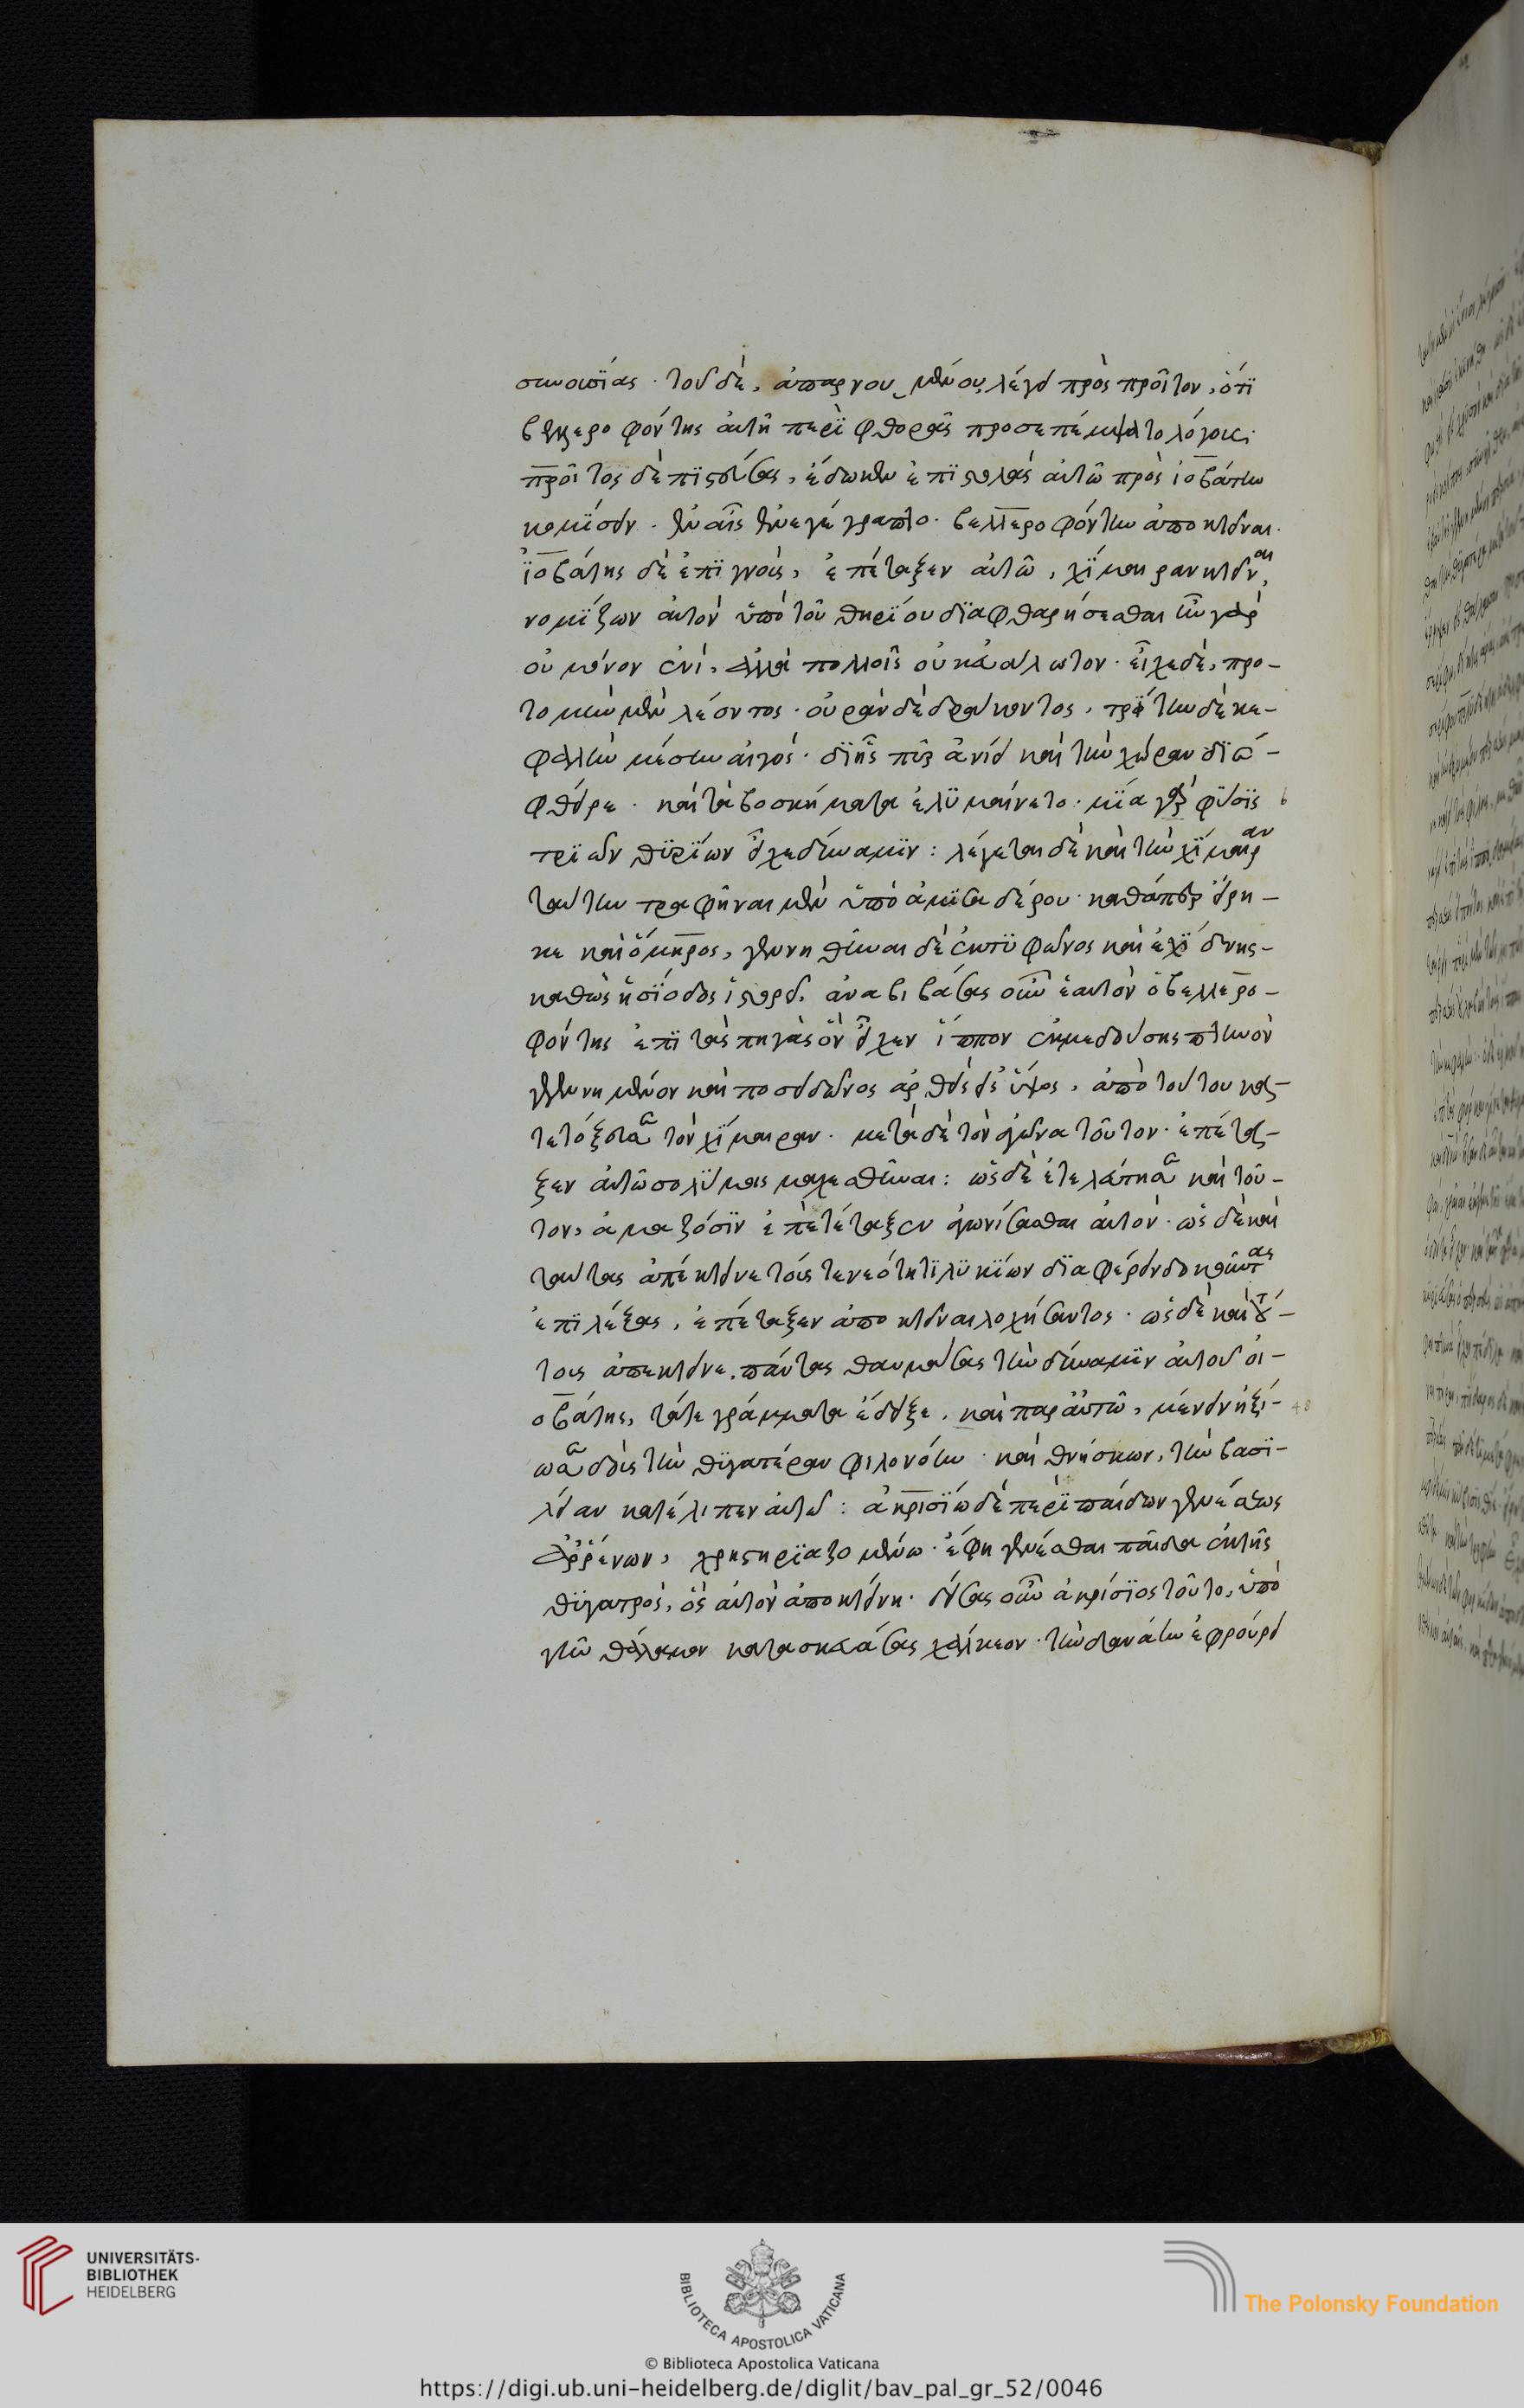 συνουσίας · τοῦ δὲ, ἀπαρνουμένου, λέγει πρὸς προῖτον, ὅτι
βελλεροφόντης αὐτῆ περὶ φθορᾶς προσεπέμψατο λόγους·
προῖτος δὲ πιστεύσας, ἔδωκεν ἐπιστολὰς αὐτῶ πρὸς ἰοβάτην
κομίσειν · ἐν αἷς ἐνεγέγραπτο · βελλεροφόντην ἀποκτεῖναι.
ἰοβάτης δὲ ἐπιγνοὺς, ἐπέταξεν αὐτῶ, χίμαιραν κτεῖναι,
νομίζων αὐτὸν ὑπὸ τοῦ θηρίου διαφθαρήσεσθαι ἦν γὰρ
οὐ μόνον ἑνὶ, ἀλλὰ πολλοῖς οὐκ εὐάλωτον · εἶχε δὲ, προ-
τομὴν μὲν λέοντος · οὐρὰν δὲ δράκοντος, τρίτην δὲ κε-
φαλὴν μέσην αἰγός · δι ἧς πῦρ ἀνίει καὶ τὴν χώραν διέ-
φθειρε · καὶ τὰ βοσκήματα ἐλυμαίνετο · μία γὰρ φύσις
τριῶν θυρίων εἶχε δύναμιν : λέγεται δὲ καὶ τὴν χίμαιραν
ταύτην τραφῆναι μὲν ὑπὸ ἀμισαδέρου · καθάπερ εἴρη-
κε καὶ ὅμηρος, γεννηθῆναι δὲ ἐκ τυφῶνος καὶ ἐχίδνης-
καθὼς ἡσίοδος ἱστορεῖ. ἀναβιβάσας οὖν ἑαυτὸν ὁ βελλερο-
φόντης ἐπὶ τὰς πηγὰς ὃν εἶχεν ἵππον ἐκ μεδούσης πτηνὸν
γεγεννημένον καὶ ποσειδῶνος ἀρθεὶς εἰς ὕψος, ἀπὸ τούτου κα-
τετόξευσε τὸν χίμαιραν · μετὰ δὲ τὸν ἀγῶνα τοῦτον · ἐπέτα-
ξεν αὐτῶ σολύμοις μάχεσθῆναι : ὡς δὲ ἐτελεύτησε καὶ τοῦ-
τον, ἀμαζόσιν ἐπετέταξεν ἀγωνίσασθαι αὐτόν · ὡς δὲ καὶ
ταύτας ἀπέκτεινε τοὺς τε νεότητι λυκίων διαφέρειν δοκοῦντας
ἐπιλέξας, ἐπέταξεν ἀποκτεῖναι λοχήσαντας · ὡς δὲ καὶ τού-
τους ἀπέκτεινε, πάντας θαυμάσας τὴν δύναμιν αὐτοῦ ὁ ἰ-
οβάτης, τά τε γράμματα ἔδειξε, καὶ παρ αὐτῶ, μένειν ἠξί-
ωσε δοὺς τὴν θυγατέραν φιλονόην · καὶ θνήσκων, τὴν βασι-
λείαν κατέλιπεν αὐτῶ : ἀκρισίω δὲ περὶ παίδων γενέσεως
ἀρρένων, χρηστηριαζομένω · ἔφη γενέσθαι παῖδα ἐκ τῆς
θυγατρὸς, ὃς αὐτὸν ἀποκτείνη · δείσας οὖν ἀκρίσιος τοῦτο, ὑπὸ
γῆν θάλαμον κατασκευάσας χάλκεον · τὴν δανάην ἐφρούρει
UNIVERSITÄTS-
BIBLIOTHEK
HEIDELBERG
BIBLIOTECA APOSTOLICA VATICANA
The Polonsky Foundation
© Biblioteca Apostolica Vaticana
https://digi.ub.uni-heidelberg.de/diglit/bav_pal_gr_52/0046